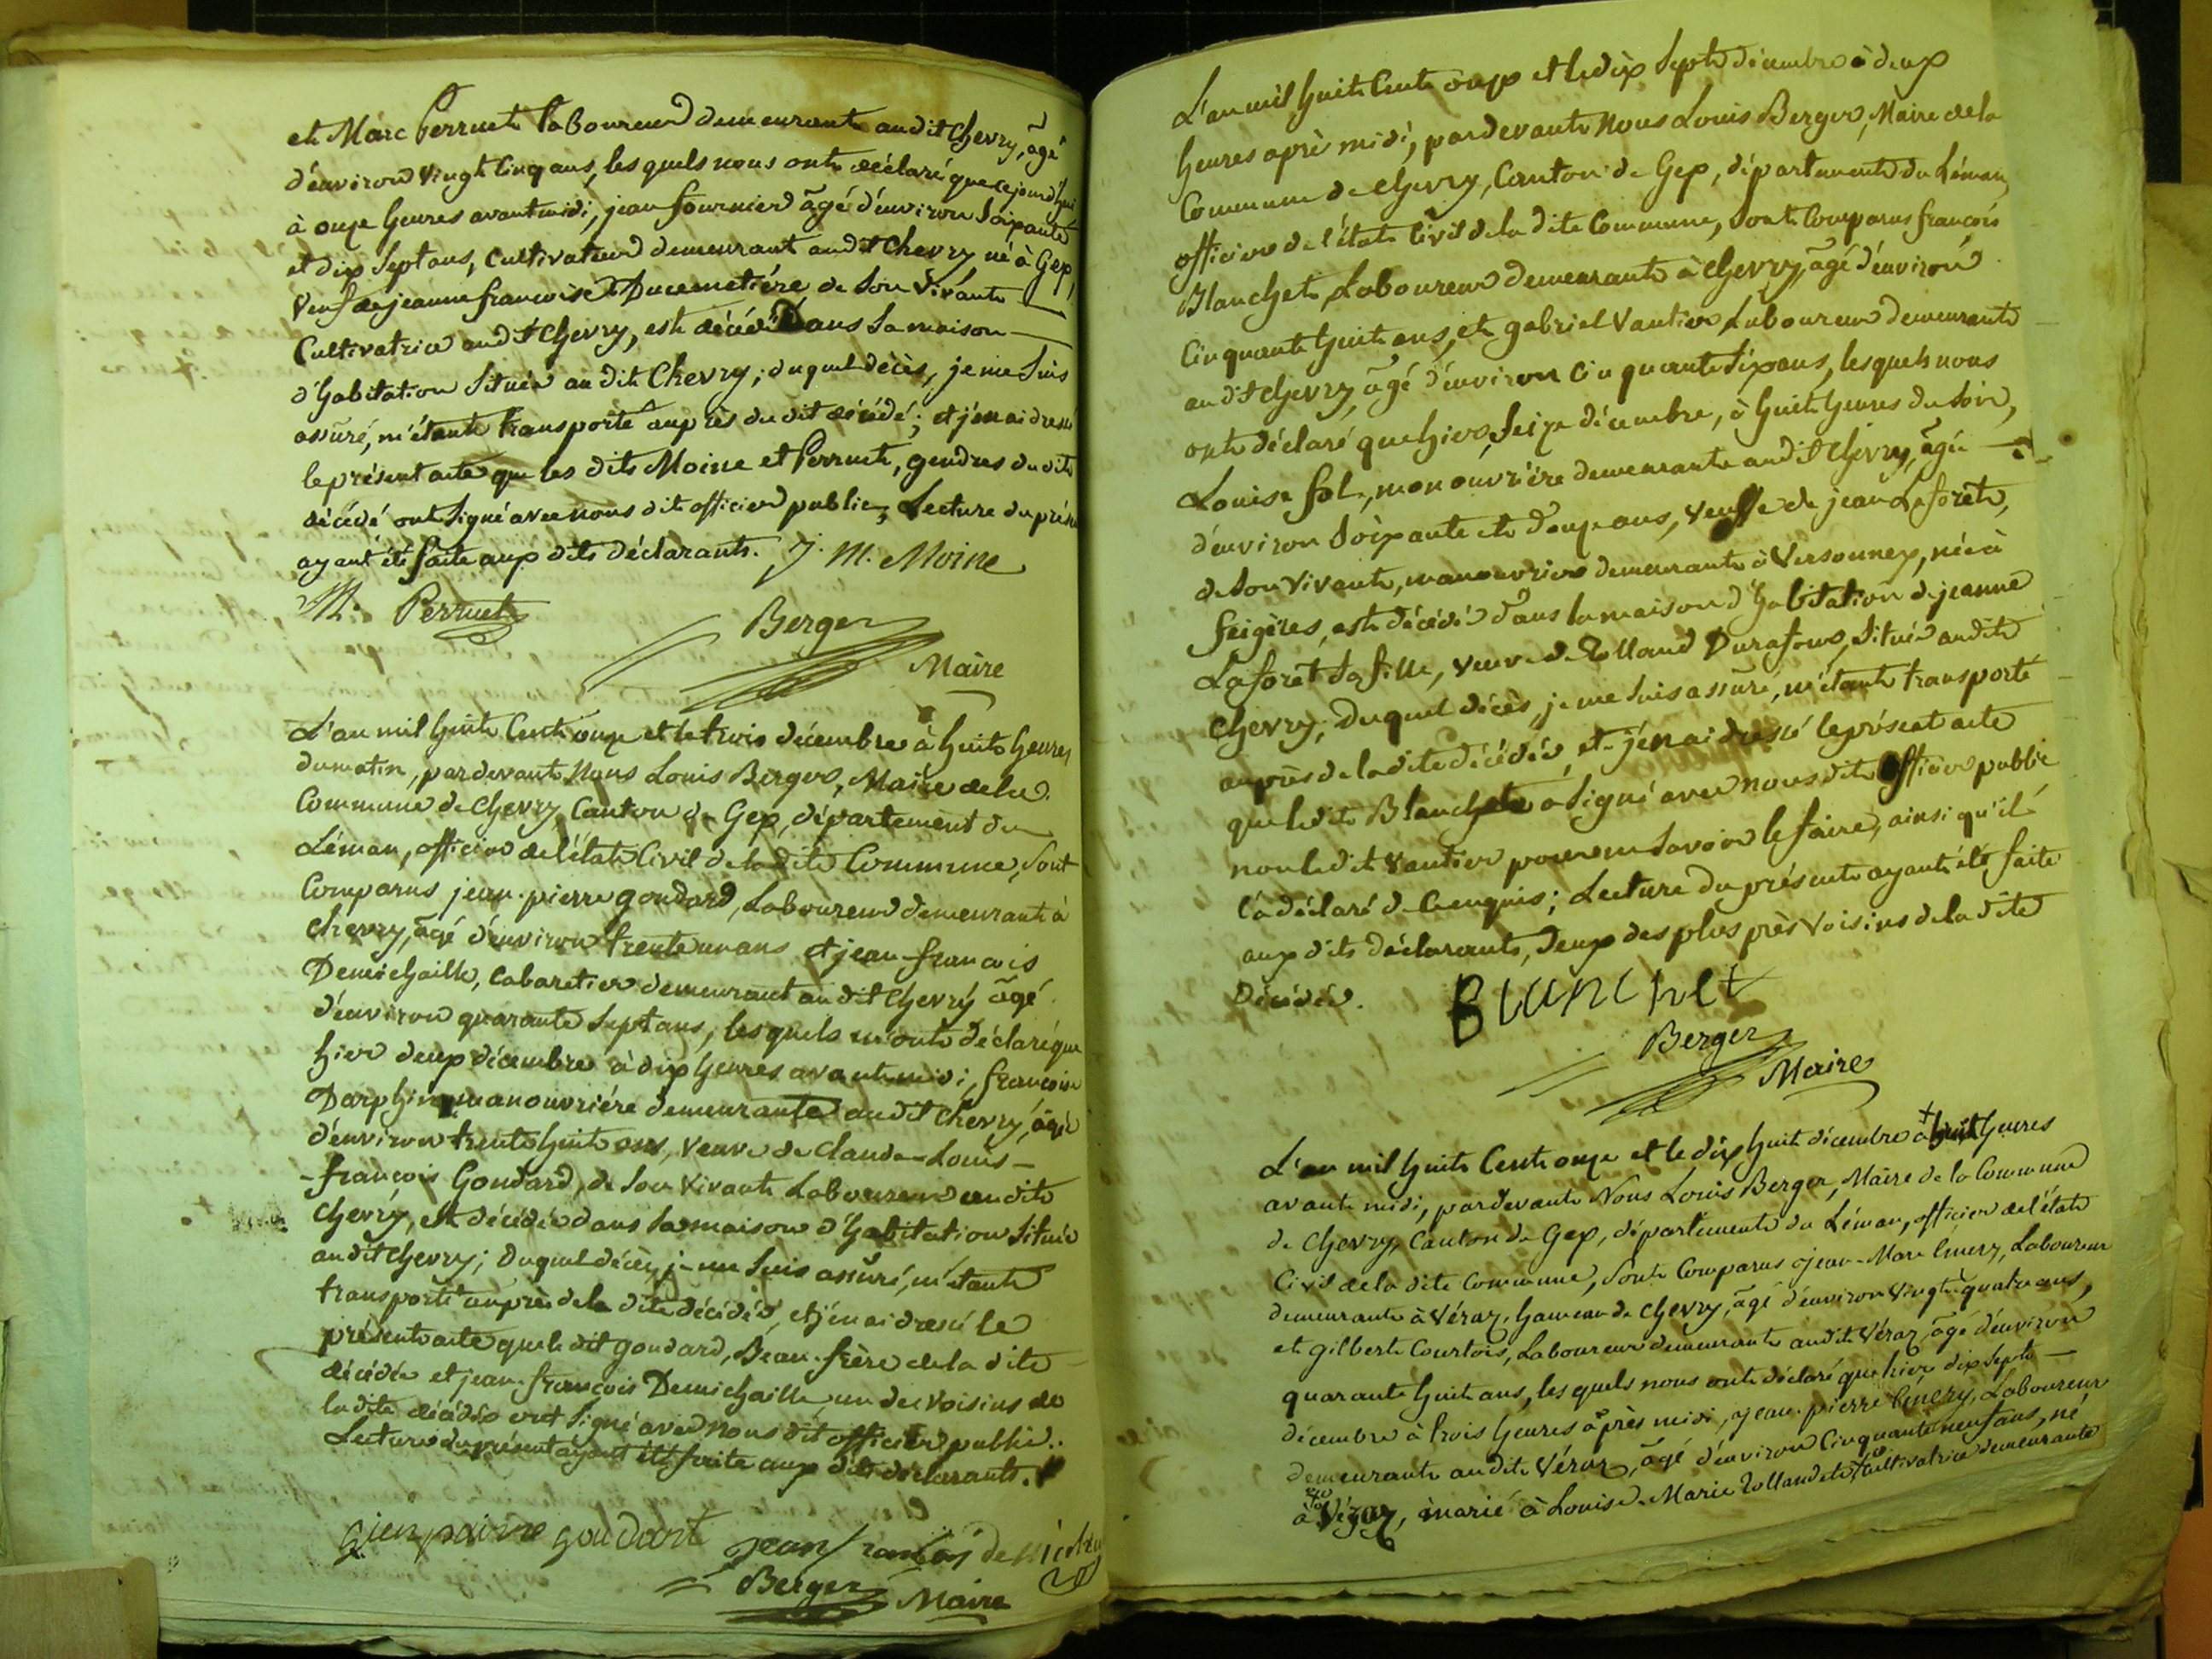 et Marc Perruet Laboureur demeurant audit Chevry, âgé
d'environ vingt cinq ans, les quels nous ont déclaré que ce jourd'hui
à onze heures avant midi, jean fournier âgé d'environ soixante
et dix sept ans, Cultivateur demeurant audit Chevry né à Gex,
Veuf de jeanne francoise Ducemetiére de Son Vivante
Cultivatrice audit Chevry, est décédé Dans Sa maison
d'habitation Située audit Chevry; duquel décès, je me Suis
assuré, m'étant transporté auprès dudit décédé; et j'en ai dressé
le présent acte que les dits Moine et Perruet, gendres dudit
décédé ont Signé avec nous dit officier public, Lecture du présent
ayant été faite aux dits déclarants. J. M. Moine
M. Perruet
Berger
Maire
L'an mil huit Cent onze et le trois décembre à huit heures
du matin, pardevant Nous Louis Berger, Maire de la
Commune de Chevry, Canton de Gex, département du
Léman, officier de l'état Civil de la dite Commune, Sont
Comparus jean-pierre goudard, Laboureur demeurant à
Chevry, âgé d'environ trente un ans et jean-françois
Demichaille, Cabaretier demeurant audit Chevry âgé
d'environ quarante Sept ans, les quels m'ont déclaré que
hier deux décembre à dix heures avant midi, francoise
Darphin, manouvriére demeurante audit Chevry, âgée
d'environ trente huit ans, Veuve de Claude-Louis-
-françois Goudard, de Son Vivant Laboureur audit
Chevry, est décédée dans Sa maison d'habitation Située
audit Chevry; Duquel décès, je me Suis assuré, m'étant
transporté auprès de la dite décédée, et j'en ai dressé le
présent acte que le dit goudard, Beau-frère de la dite
décédée et jean-françois Demichaille, un des voisins de
la dite décédée ont Signé avec Nous dit officier public.
Lecture du présent ayant été faite aux dits déclarants.
jean pairre goudart jean francoy de
Berger Maire
L'an mil huit Cent onze et le dix Sept décembre à deux
heures après midi, pardevant Nous Louis Berger, Maire de la
Commune de Chevry, Canton de Gex, département du Léman,
officier de l'état Civil de la dite Commune, Sont Comparus françois
Blanchet, Laboureur demeurant à Chevry, âgé d'environ
Cinquante huit ans, et gabriel Vautier, Laboureur demeurant
audit Chevry, âgé d'environ Cinquante Six ans, lesquels nous
ont déclaré que hier, Seize décembre, à huit heures du Soir,
Louise fol, manouvrière demeurante audit Chevry, âgée
d'environ Soixante et douze ans, Veuve de jean Laforêt,
de Son Vivant, manouvrier demeurant à Versonnex, née à
feigères, est décédée dans la maison d'habitation de jeanne
Laforêt Sa fille, veuve de Rolland Durafour, Située audit
Chevry; Duquel décès, je me Suis assuré, m'étant transporté
auprès de la dite décédée, et j'en ai dressé le présent acte
que le dit Blanchet a Signé avec nous dit officier public
non le dit Vautier pour ne Savoir le faire, ainsi qu'il
l'a déclaré de ce enquis; Lecture du présent ayant été faite
aux dits déclarants, deux des plus près Voisins de la dite
Décédée.
Blanchet
Berger
Maire
L'an mil huit Cent onze et le dix huit décembre à huit heures
avant midi, pardevant Nous Louis Berger, Maire de la Commune
de Chevry, Canton de Gex, département du Léman, officier de l'état
Civil de la dite Commune, Sont Comparus jean-Marc Emery, Laboureur
demeurant à Véraz, hameau de Chevry, âgé d'environ Vingt quatre ans,
et gilbert Courtois, Laboureur demeurant audit Véraz, âgé d'environ
quarante huit ans, les quels nous ont déclaré que hier, dix Sept
décembre à trois heures après midi, jean-pierre Emery, Laboureur
demeurant audit Véraz, âgé d'environ Cinquante neuf ans, né
à Véraz, marié à Louise-Marie Rollandet, Cultivatrice demeurante